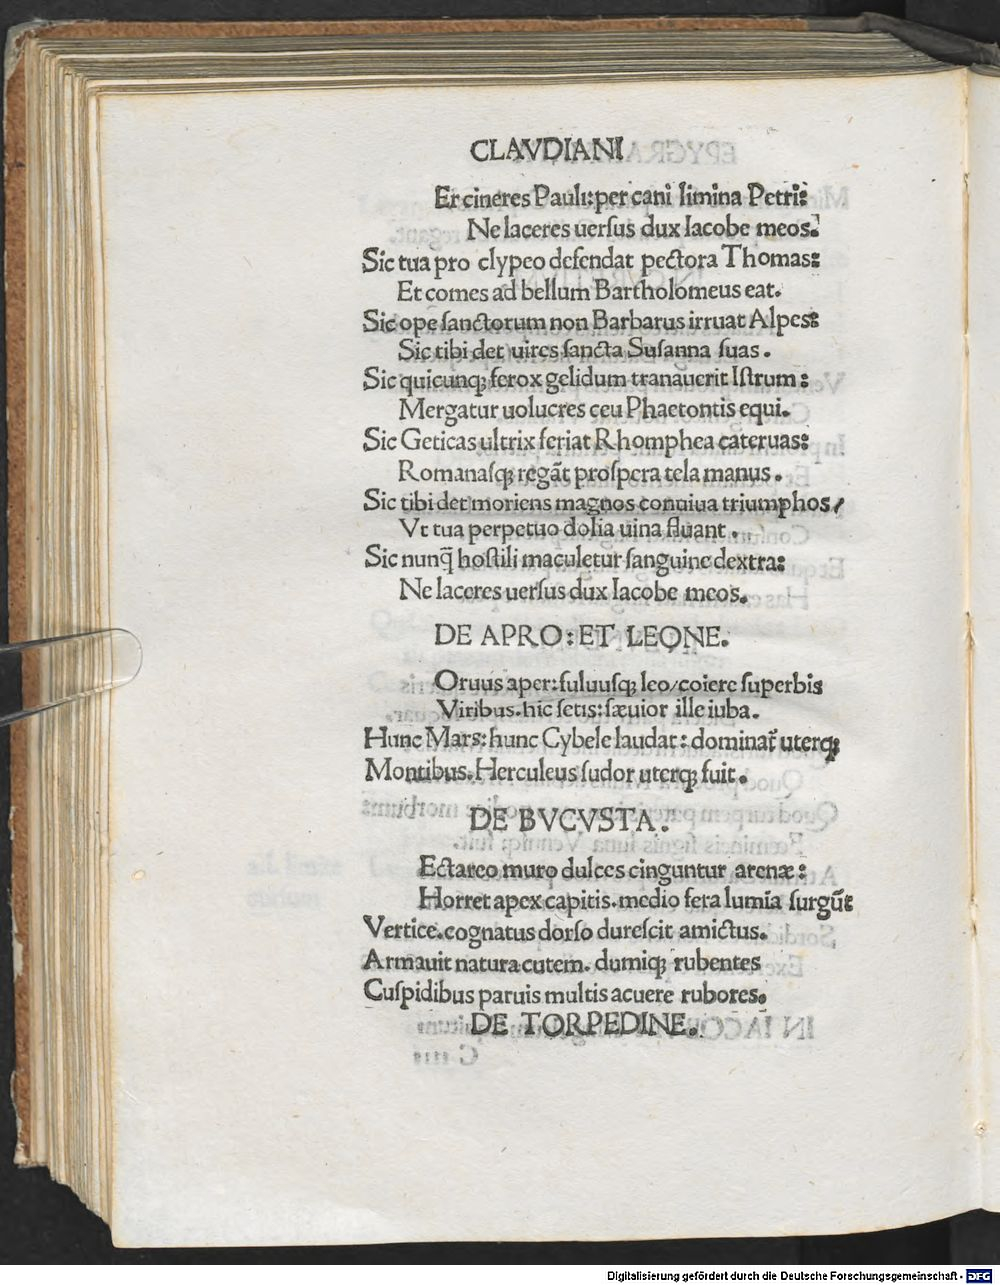 CLAVDIANI
Er cineres Pauli: per cani limina Petri:
Ne laceres uersus dux Iacobe meos.
Sic tua pro clypeo defendat pectora Thomas:
Et comes ad bellum Bartholomeus eat.
Sic ope sanctorum non Barbarus irruat Alpes:
Sic tibi det uires sancta Susanna suas.
Sic quicunqꝫ ferox gelidum tranauerit Istrum:
Mergatur uolucres ceu Phaetontis equi.
Sic Geticas ultrix feriat Rhomphea cateruas:
Romanasqꝫ regãt prospera tela manus.
Sic tibi det moriens magnos conuiua triumphos/
Vt tua perpetuo dolia uina fluant.
Sic nunq̃ hostili maculetur sanguine dextra:
Ne laceres uersus dux Iacobe meos.
DE APRO: ET LEONE.
Oruus aper: fuluusqꝫ leo/coiere superbis
Viribus. hic setis: sæuior ille iuba.
Hunc Mars: hunc Cybele laudat: dominat᷑ uterqꝫ
Montibus. Herculeus sudor uterqꝫ fuit.
DE BVCVSTA.
Ectareo muro dulces cinguntur arenæ:
Horret apex capitis. medio fera lumia surgũt
Vertice. cognatus dorso durescit amictus.
Armauit natura cutem. dumiqꝫ rubentes
Cuspidibus paruis multis acuere rubores.
DE TORPEDINE.
Digitalisierung gefördert durch die Deutsche Forschungsgemeinschaft - DFG